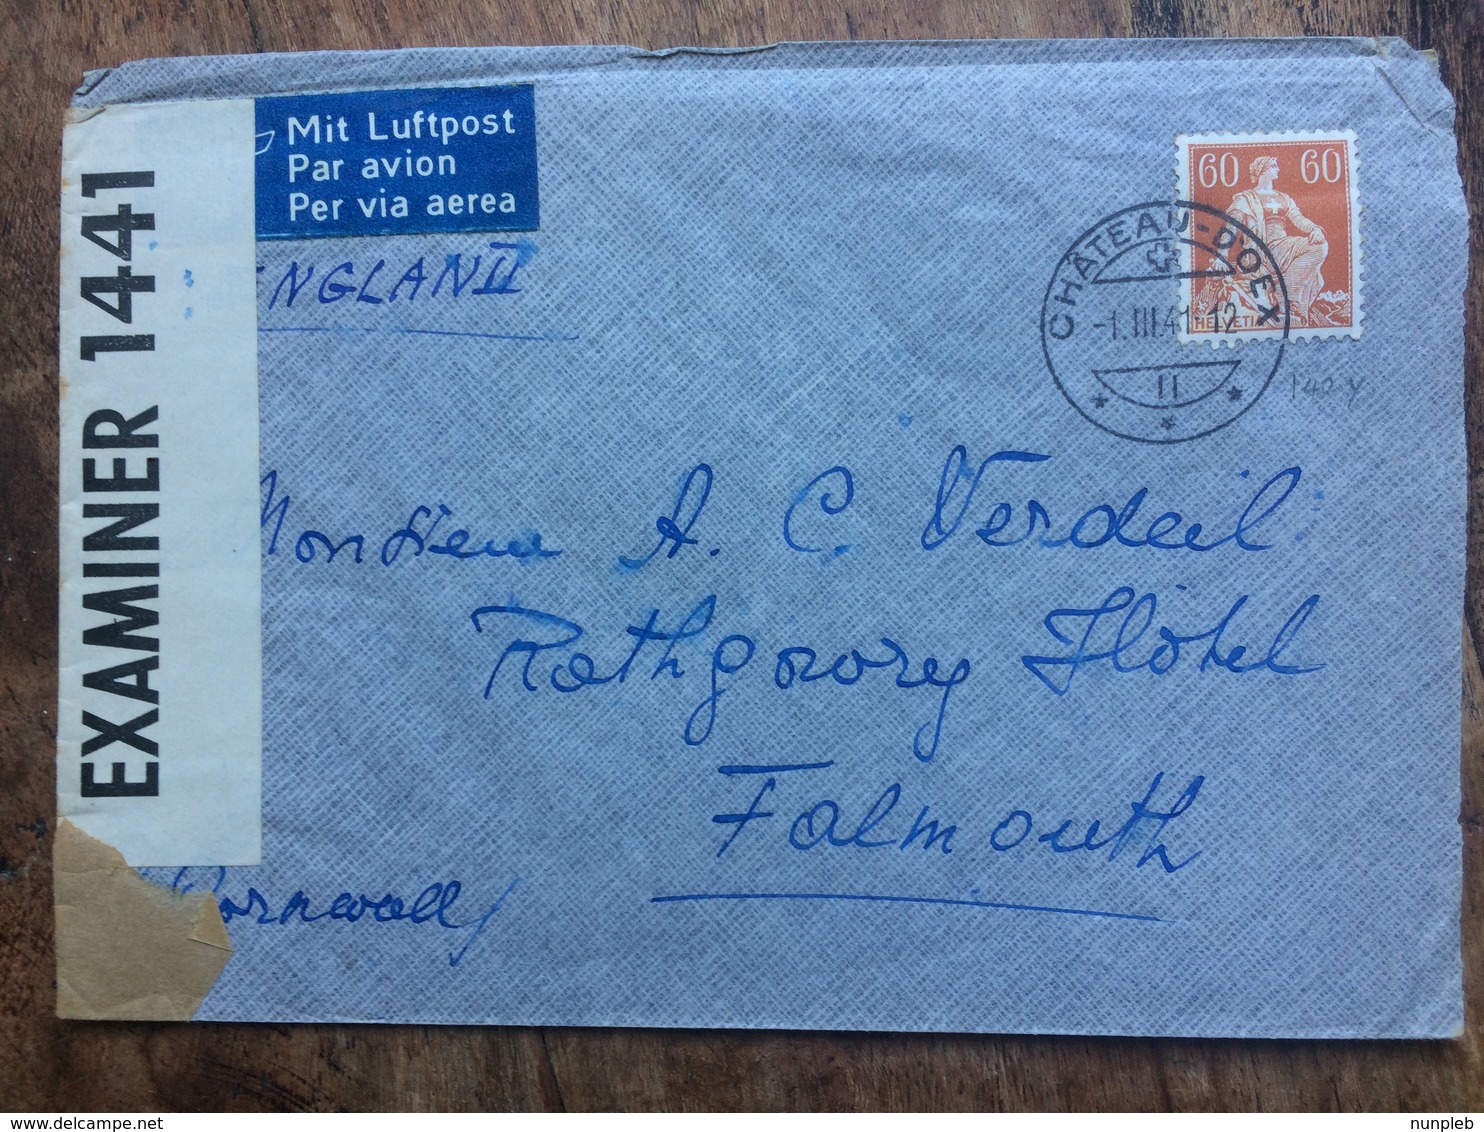 EXAMINER 1441
Mit Luftpost
Par avion
Per via aerea
ENGLAND
60 60
HELVETIA
CHÂTEAU-D'OEX
-1.III.41-12
II
140 y
Monsieur A. C. Verdeil
Hôtel
Falmouth
Cornwall/
nunpleb